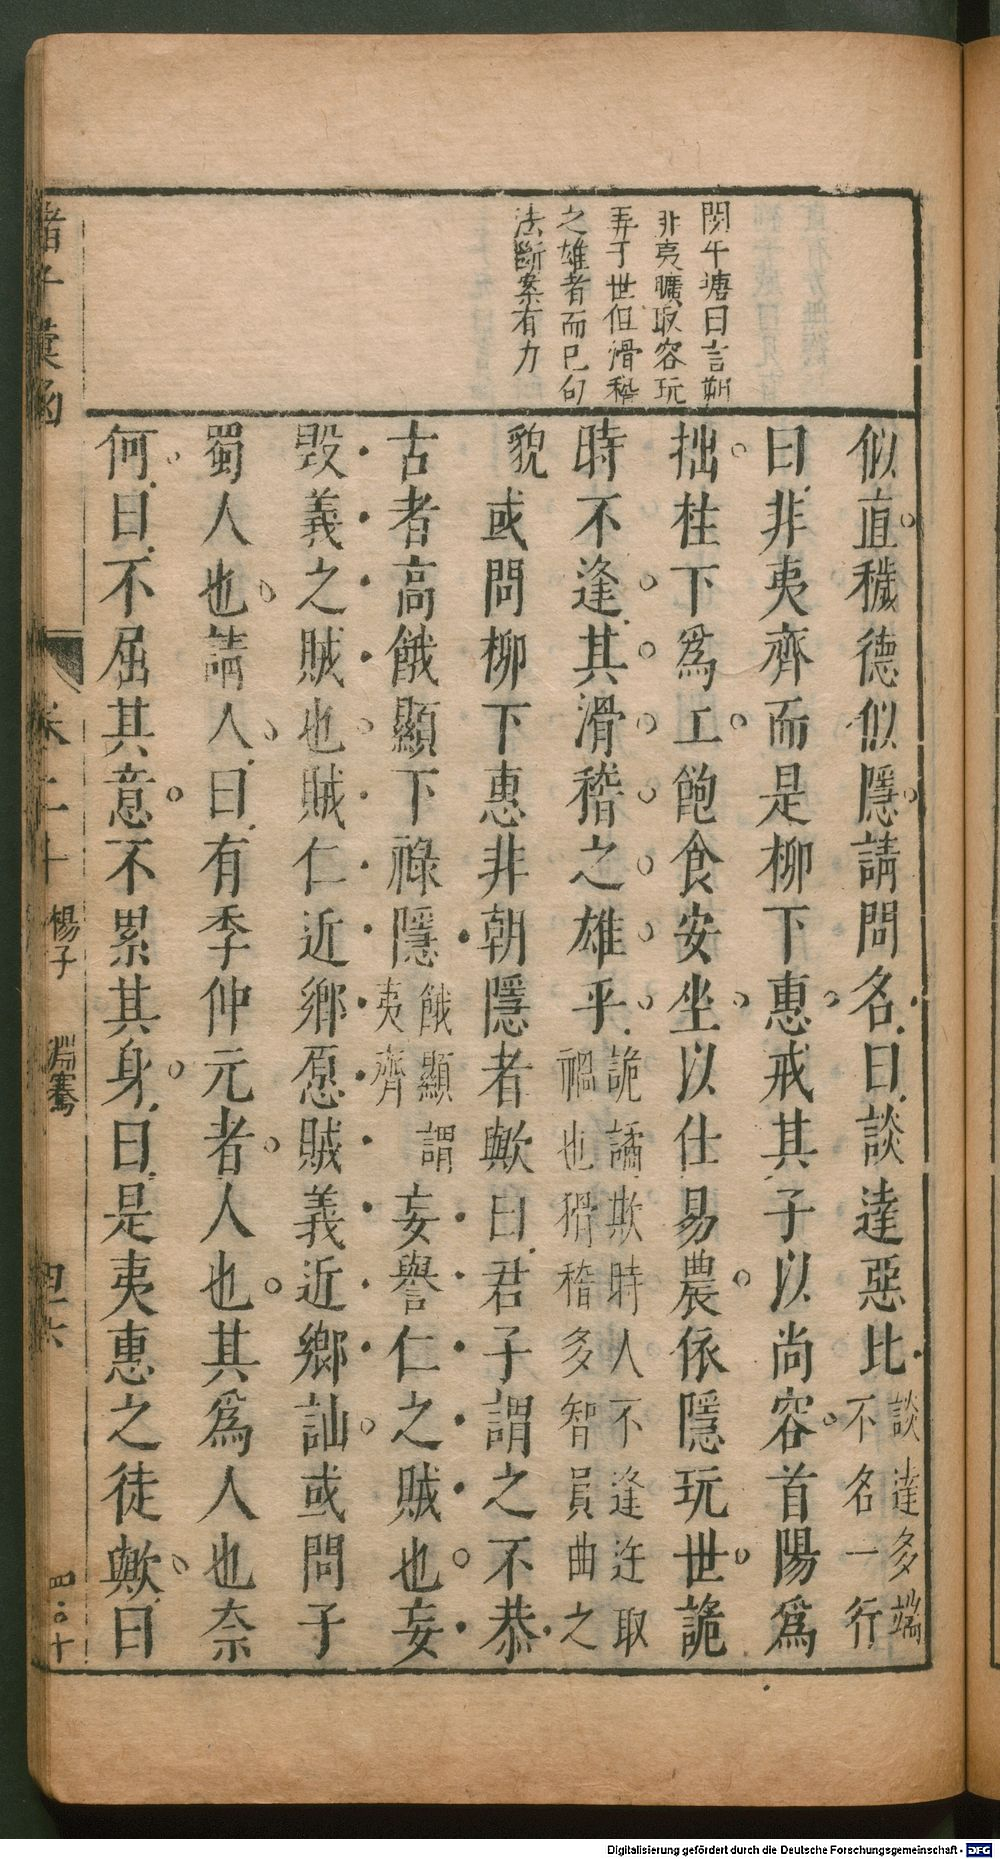 閔午塘曰言朔
非夷曠取容玩
弄于世但滑稽
之雄者而已句
法斷案有力
似直穢德似隱請問名曰談達惡比談達多端不名一行
曰非夷齊而是柳下惠戒其子以尚容首陽爲
拙柱下爲工飽食安坐以仕易農依隱玩世詭
時不逢其滑稽之雄乎詭譎欺時人不逢迕取禍也猾稽多智員曲之
貌 或問柳下惠非朝隱者歟曰君子謂之不恭
古者高餓顯下祿隱餓顯謂夷齊妄譽仁之賊也妄
毀義之賊也賊仁近鄉愿賊義近鄉訕或問子
蜀人也請人曰有季仲元者人也其爲人也奈
何曰不屈其意不累其身曰是夷惠之徒歟曰
諸子彙函 卷二十 楊子 淵騫 四十六
Digitalisierung gefördert durch die Deutsche Forschungsgemeinschaft - DFG